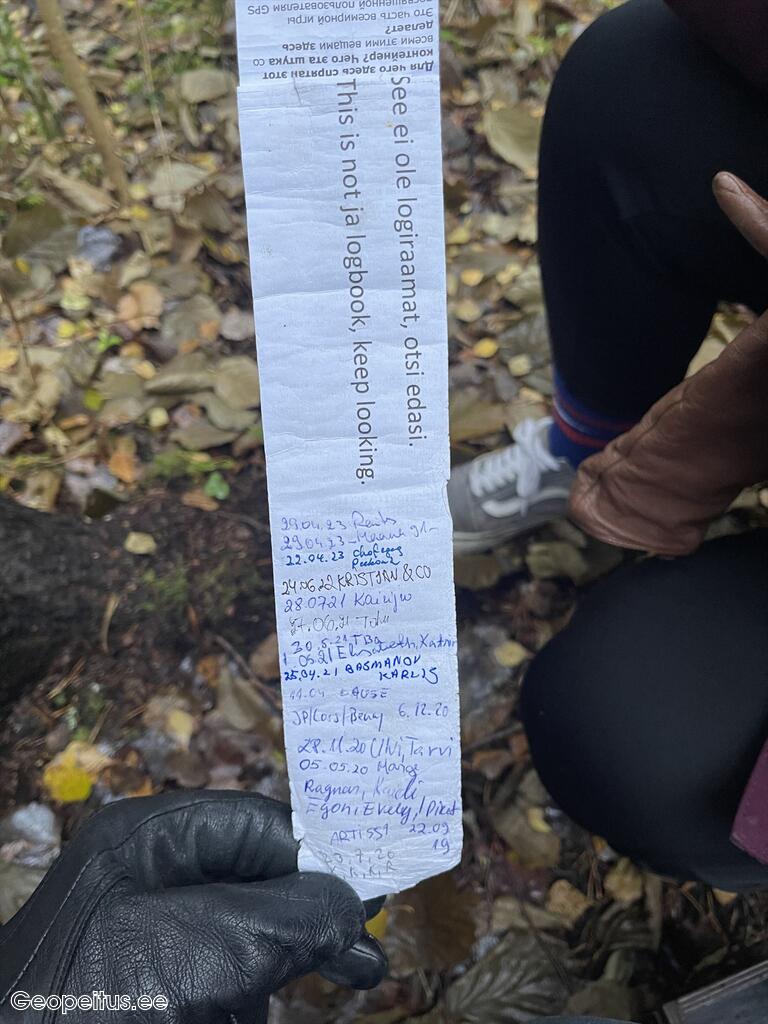 посвященной пользователям GPS
Это часть всемирной игры
делает?
всеми этими вещами здесь
контейнер? Чего эта штука со
Для чего здесь спрятан этот
See ei ole logiraamat, otsi edasi.
This is not ja logbook, keep looking.
29.04.23
29.04.23
22.04.23
24.06.22 KRISTJAN & CO
28.07.21 Kairijw
30.5.21 TBG
05.21 Elisabeth, Katrin
25.04.21 BASMANOV
KARLIS
11.04 CAUSE
JP/Cors/Beny 6.12.20
28.11.20 Ulvi, Tarvi
05.05.20 Marge
Ragnar, Kaidi
Egon, Evely, Piret
ARTISS1 22.09
19
23.7.20
K, K, K, R
Geopeitus.ee